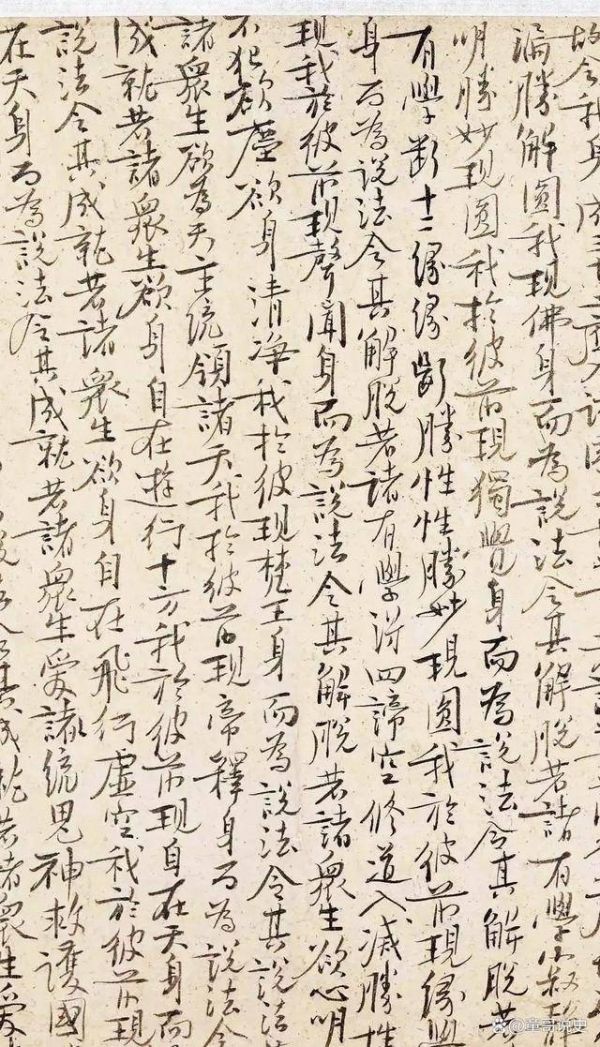 故令我身成三十二應入諸國
漏勝解圓我現佛身而為說法令其解脫若諸有學寂靜
明勝妙現圓我於彼前現獨覺身而為說法令其解脫若
有學斷十二緣緣斷勝性性勝妙現圓我於彼前現緣覺
身而為說法令其解脫若諸有學得四諦空修道入滅勝性
現我於彼前現聲聞身而為說法令其解脫若諸衆生欲心明
不犯欲塵欲身清淨我於彼現梵王身而為說法令其說法
諸衆生欲為天主統領諸天我於彼前現帝釋身而為說法令
成就若諸衆生欲身自在遊行十方我於彼前現自在天身而
說法令其成就若諸衆生欲身自在飛行虛空我於彼前現
在天身而為說法令其成就若諸衆生愛諸統鬼神救護國
其成就若諸衆生愛
@童哥说史